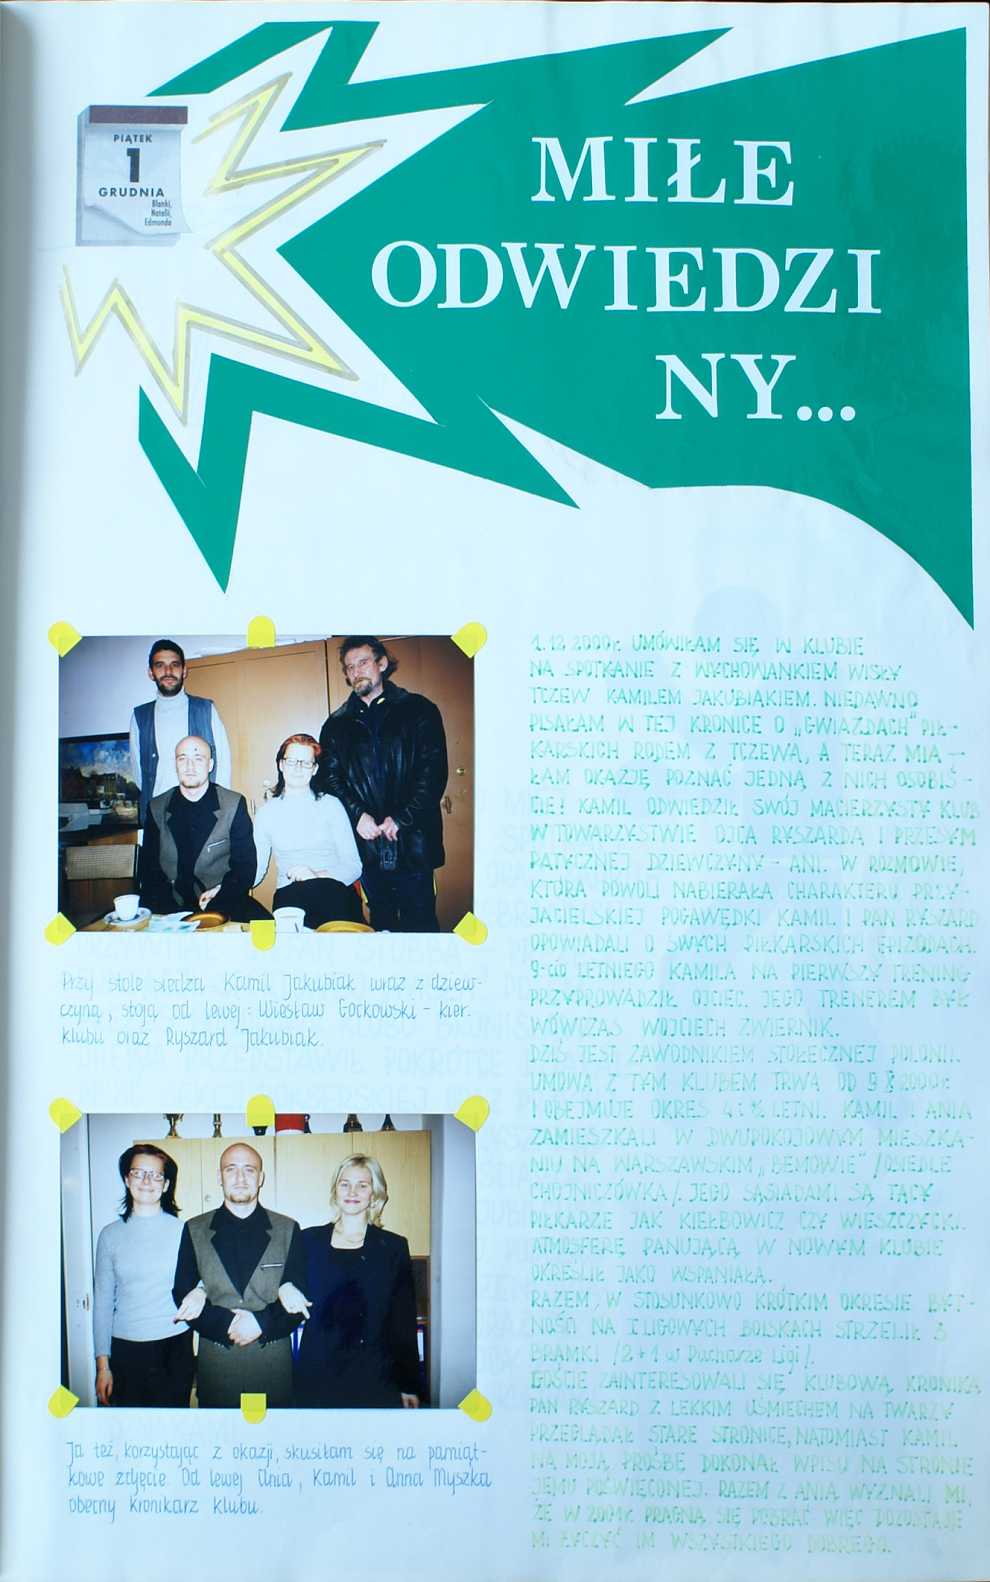 PIĄTEK
1
GRUDNIA
Blanki,
Natalii,
Edmunda
MIŁE
ODWIEDZI
NY...
1.12.2000r. UMÓWIŁAM SIĘ W KLUBIE
NA SPOTKANIE Z WYCHOWANKIEM WISŁY
TCZEW KAMILEM JAKUBIAKIEM. NIEDAWNO
PISAŁAM W TEJ KRONICE O „GWIAZDACH" PIŁ-
KARSKICH RODEM Z TCZEWA, A TERAZ MIA-
ŁAM OKAZJĘ POZNAĆ JEDNĄ Z NICH OSOBIŚ-
CIE! KAMIL ODWIEDZIŁ SWÓJ MACIERZYSTY KLUB
W TOWARZYSTWIE OJCA RYSZARDA I PRZESYM
PATYCZNEJ DZIEWCZYNY - ANI. W ROZMOWIE,
KTÓRA POWOLI NABIERAŁA CHARAKTERU PRZY-
JACIELSKIEJ POGAWĘDKI KAMIL I PAN RYSZARD
OPOWIADALI O SWYCH PIŁKARSKICH EPIZODACH.
9-cio LETNIEGO KAMILA NA PIERWSZY TRENING
PRZYPROWADZIŁ OJCIEC. JEGO TRENEREM BYŁ
WÓWCZAS WOJCIECH ZWIERNIK.
DZIŚ JEST ZAWODNIKIEM STOŁECZNEJ POLONII.
UMOWA Z TYM KLUBEM TRWA OD 2000r.
I OBEJMUJE OKRES 4 i ½ LETNI. KAMIL I ANIA
ZAMIESZKALI W DWUPOKOJOWYM MIESZKA-
NIU NA WARSZAWSKIM „BEMOWIE" /OSIEDLE
CHOJNICZÓWKA/. JEGO SĄSIADAMI SĄ TACY
PIŁKARZE JAK KIEŁBOWICZ CZY WIESZCZYCKI.
ATMOSFERĘ PANUJĄCĄ W NOWYM KLUBIE
OKREŚLIŁ JAKO WSPANIAŁA.
RAZEM, W STOSUNKOWO KRÓTKIM OKRESIE BYT-
NOŚCI NA I LIGOWYCH BOISKACH STRZELIŁ 3
BRAMKI /2+1 w Pucharze Ligi/.
GOŚCIE ZAINTERESOWALI SIĘ KLUBOWĄ KRONIKĄ
PAN RYSZARD Z LEKKIM UŚMIECHEM NA TWARZY
PRZEGLĄDAŁ STARE STRONICE, NATOMIAST KAMIL
NA MOJĄ PROŚBĘ DOKONAŁ WPISU NA STRONIE
JEMU POŚWIĘCONEJ. RAZEM Z ANIĄ WYZNALI MI,
ŻE W 2001r. PRAGNĄ SIĘ POBRAĆ WIĘC POZOSTAJE
MI ŻYCZYĆ IM WSZYSTKIEGO DOBREGO.
Przy stole siedzą Kamil Jakubiak wraz z dziew-
czyną, stoją od lewej: Wiesław Gockowski - kier.
klubu oraz Ryszard Jakubiak.
Ja też, korzystając z okazji, skusiłam się na pamiąt-
kowe zdjęcie. Od lewej Ania, Kamil i Anna Myszka
obecny kronikarz klubu.